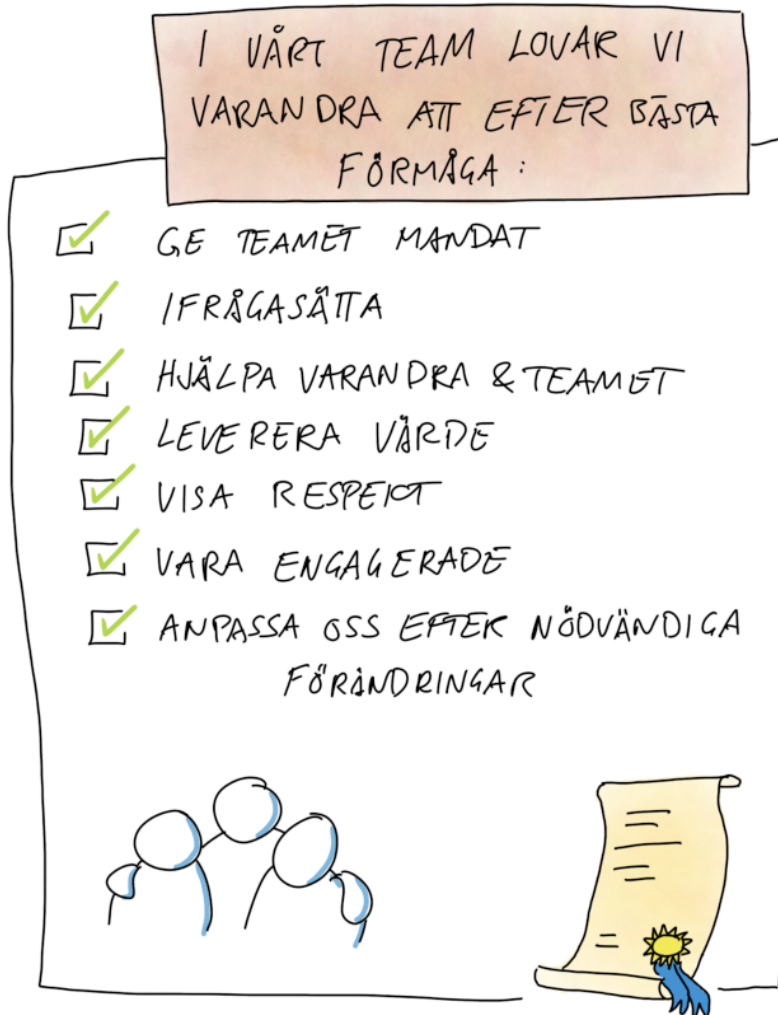 I VÅRT TEAM LOVAR VI
VARANDRA ATT EFTER BÄSTA
FÖRMÅGA :
GE TEAMET MANDAT
IFRÅGASÄTTA
HJÄLPA VARANDRA & TEAMET
LEVERERA VÄRDE
VISA RESPEKT
VARA ENGAGERADE
ANPASSA OSS EFTER NÖDVÄNDIGA
FÖRÄNDRINGAR